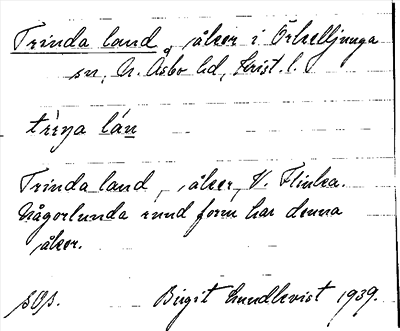 Trinda land, åker i Örkelljunga
sn, N. Åsbo hd, Krist. l.
trìṇa lán
Trinda land, åker, V. Flinka.
Någorlunda rund form har denna
åker.
Birgit Lundkvist 1939.